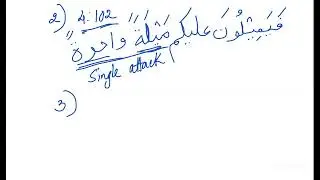 2) 4:102
فَيَمِيلُونَ عَلَيكُم مَيْلَةً وَاحِدَةً
Single attack
3)